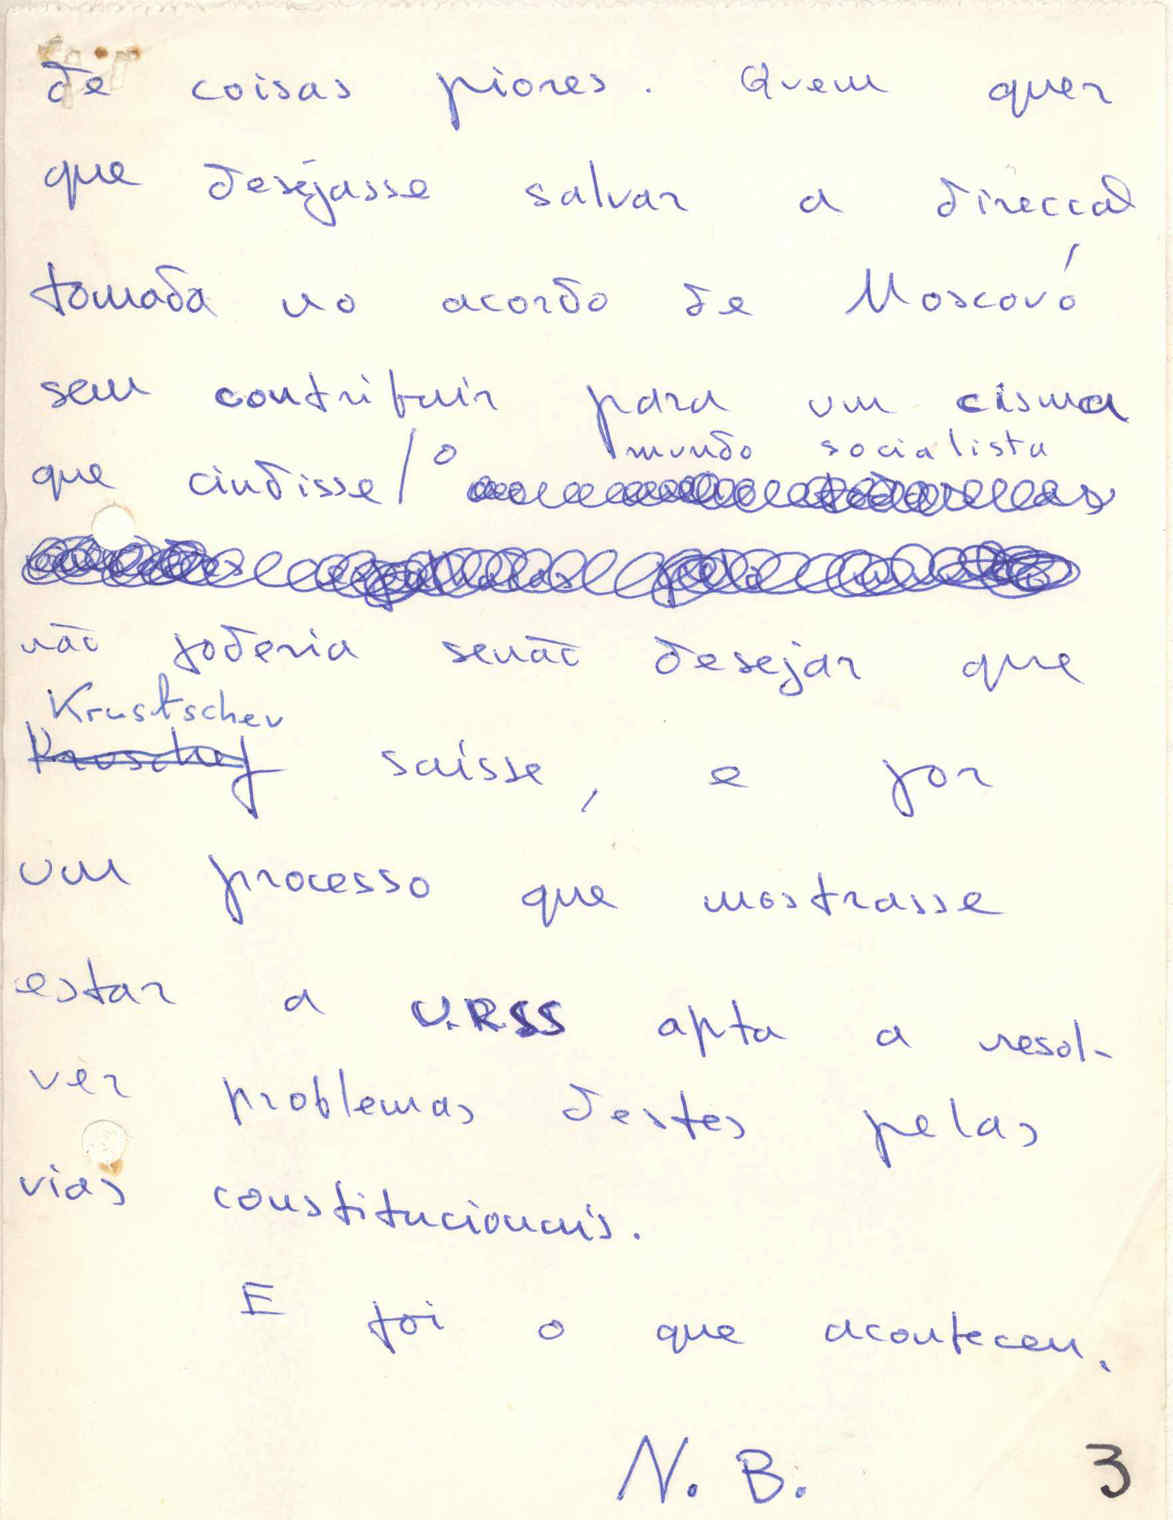 de coisas piores. Quem quer
que desejasse salvar a direcção
tomada no acordo de Moscovo
sem contribuir para um cisma
que cindisse / o mundo socialista
não poderia senão desejar que
Krustschev
saísse, e por
um processo que mostrasse
estar a U.R.S.S apta a resol-
ver problemas destes pelas
vias constitucionais.
E foi o que aconteceu.
N. B. 3